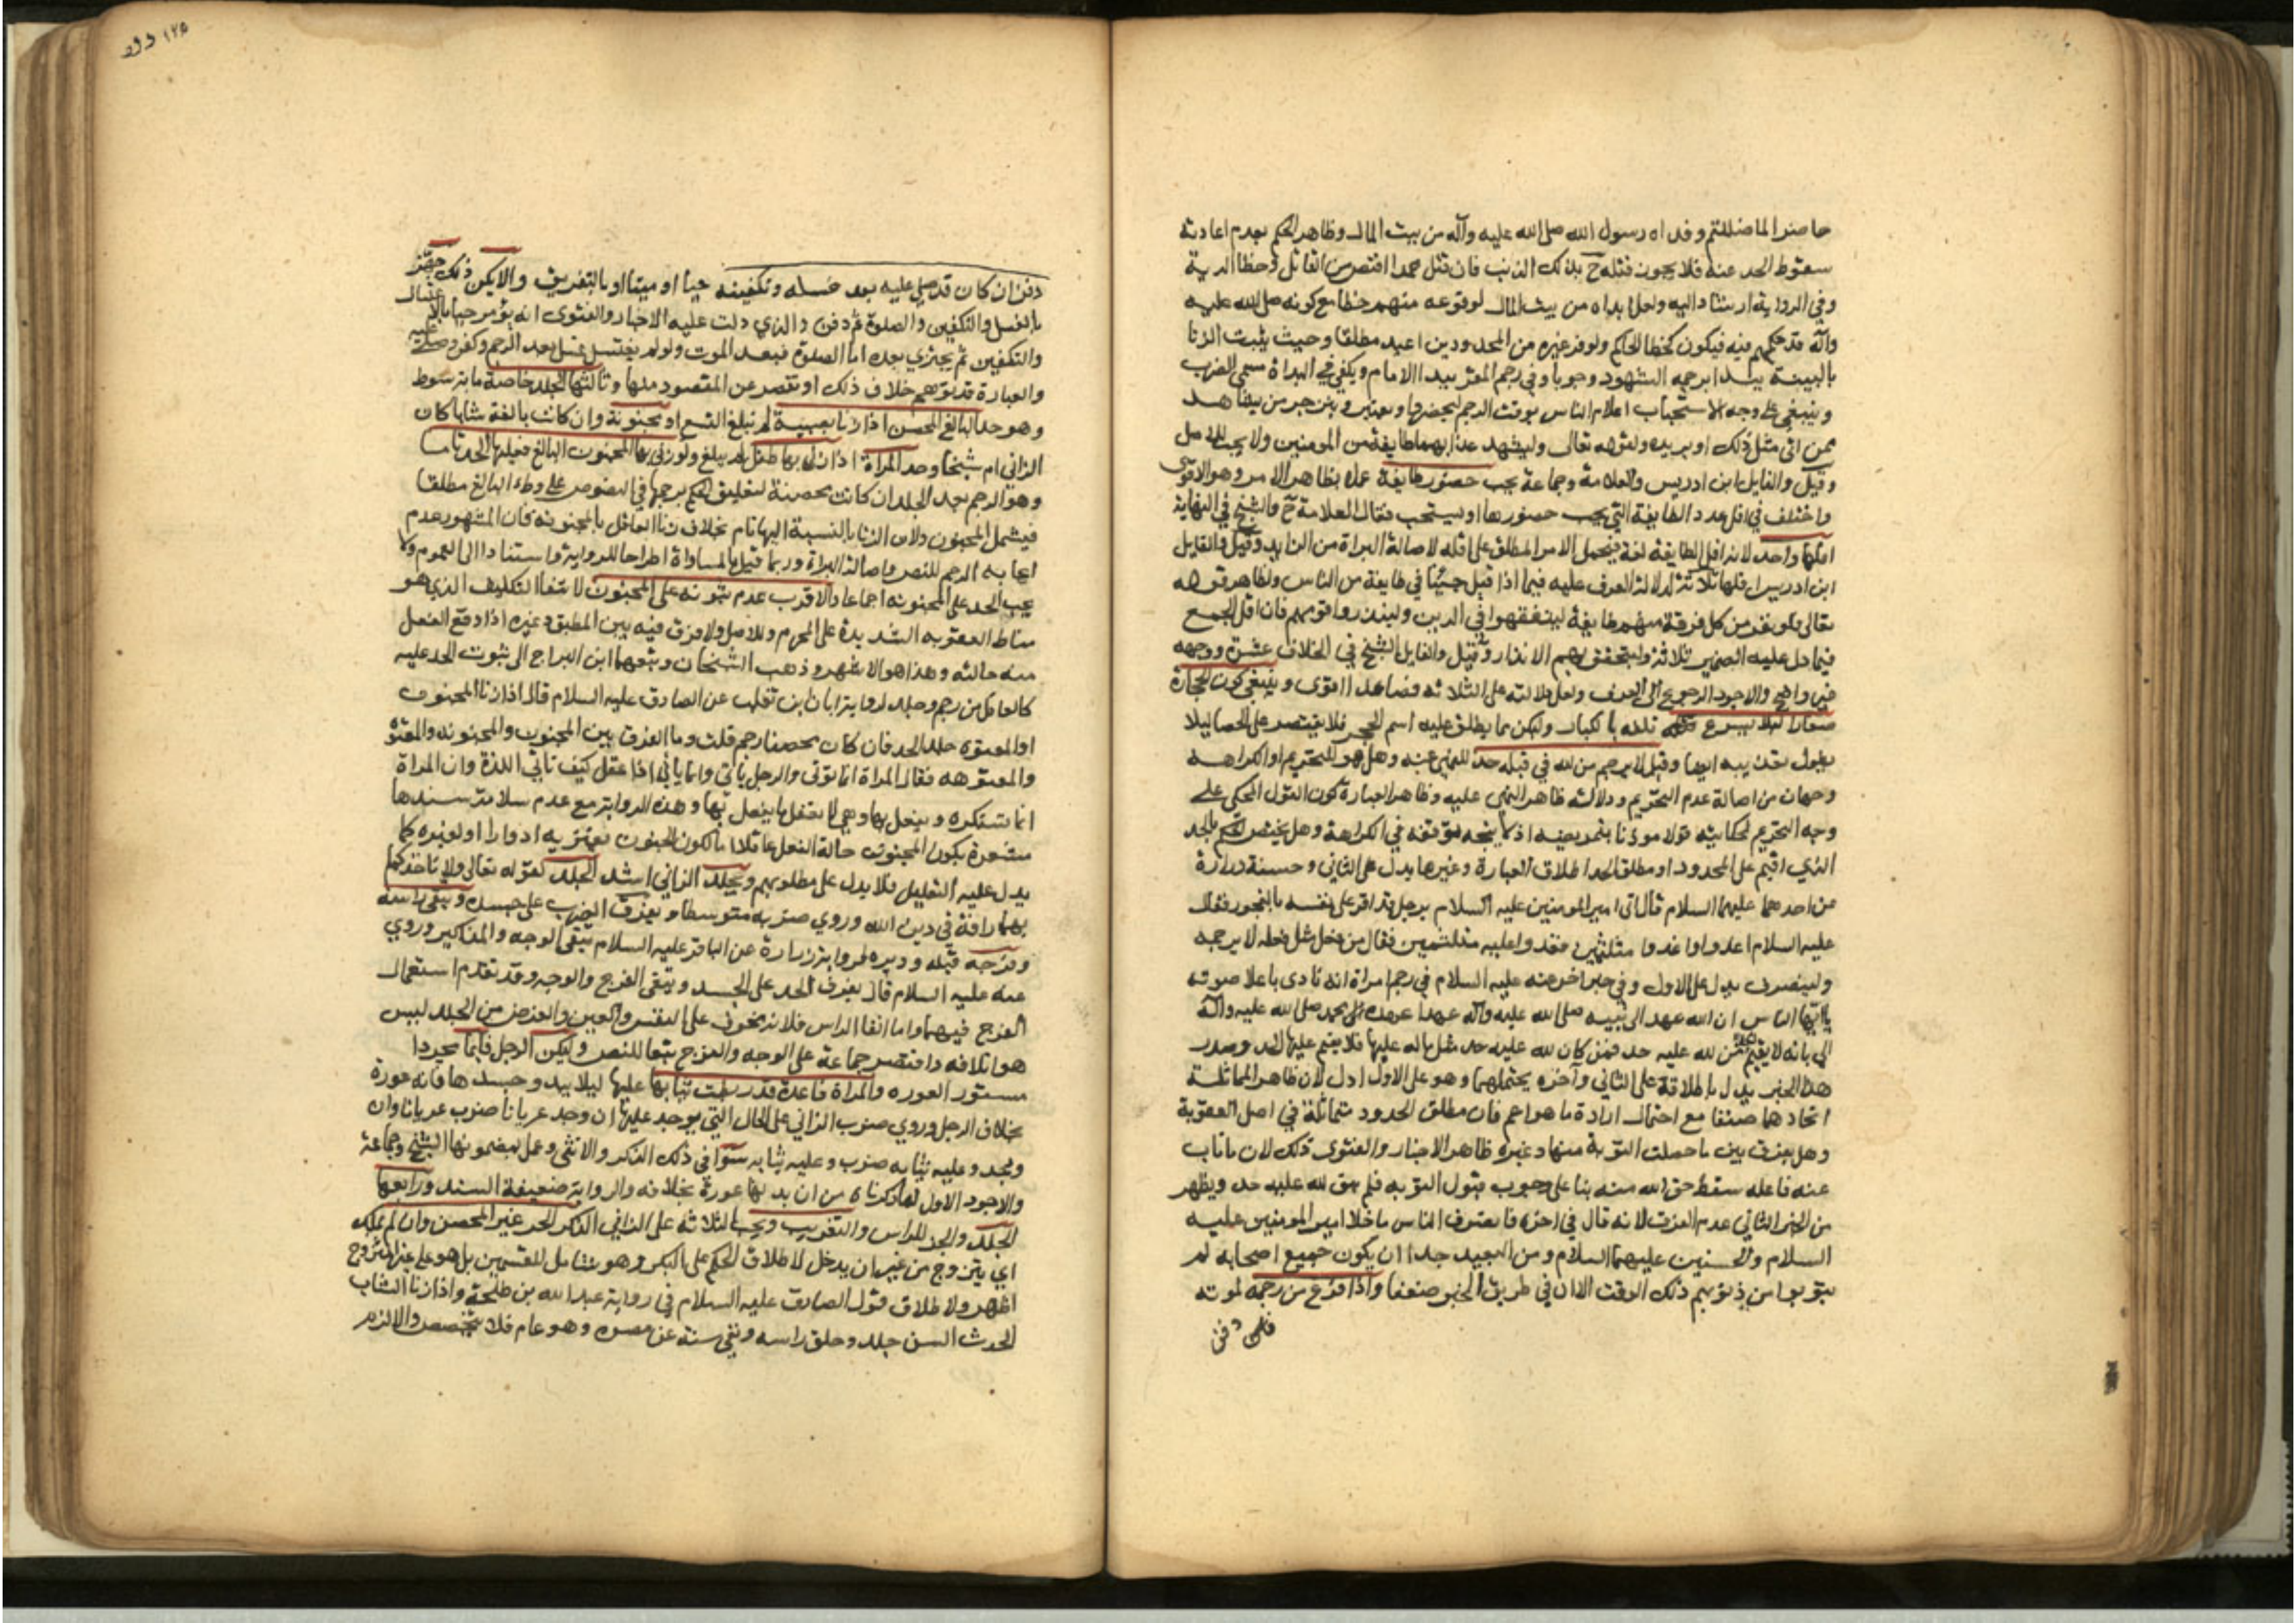 حاضرا لما ضللتم وفداه رسول الله صلى الله عليه وآله من بيت المال وظاهر الحكم بعدم اعادته
سقوط الحد عنه فلا يجوز قتله ح بذلك الذنب فان قتل عمدا اقتص من القاتل وخطا الدية
وفي الرواية ارشاد اليه ولعل ابداه من بيت المال لوقوعه منهم خطا مع كونه صلى الله عليه
وآله قد حكم فيه فيكون كخطا الحاكم ولو فر غيره من المحدودين اعيد مطلقا وحيث يثبت الزنا
بالبينة يبدا برجمه الشهود وجوبا وفي رجم المقر يبدا الامام ويكفي في البداة مسمى الضرب
وينبغي على وجه الاستحباب اعلام الناس بوقت الرجم ليحضروا ويعتبروا وينزجر من يشاهد
ممن اتى مثل ذلك او يريده ولقوله تعالى وليشهد عذابهما طايفة من المومنين ولا يجب للاصل
وقيل والقايل ابن ادريس والعلامة وجماعة يجب حضور طايفة عملا بظاهر الامر وهو الاقوى
واختلف في اقل عدد الطايفة التي يجب حضورها او يستحب فقال العلامة ح والشيخ في النهاية
اقلها واحد لانه اقل الطايفة لغة فيحمل الامر المطلق على اقله لاصالة البراة من الزايد وقيل والقايل
ابن ادريس اقلها ثلاثة لدلالة العرف عليه فيما اذا قيل جئنا في طايفة من الناس ولظاهر قوله
تعالى فلولا نفر من كل فرقة منهم طايفة ليتفقهوا في الدين ولينذروا قومهم فان اقل الجمع
فيما دل عليه الضمير ثلاثة وليتحقق بهم الانذار وقيل والقايل الشيخ في الخلاف عشرة ووجهه
غير واضح والاجود الرجوع الى العرف ولعل دلالته على الثلاثة فصاعدا اقوى وينبغي كون الحجارة
صغارا ليلا يسرع تلفه بالكبار وليكن مما يطلق عليه اسم الحجر فلا يقتصر على الحصا ليلا
يطول تعذيبه ايضا وقيل لا يرجم من لله في قبله حد للنهي عنه وهل هو للتحريم او الكراهة
وجهان من اصالة عدم التحريم ودلالة ظاهر النهي عليه وظاهر العبارة كون القول المحكي على
وجه التحريم لحكايته قولا موذنا بتمريضه اذ لا يتجه توقفه في الكراهة وهل يختص الحكم بالحد
الذي اقيم على المحدود او مطلق الحد اطلاق العبارة وغيرها يدل على الثاني وحسنة زرارة
عن احدهما عليهما السلام قال اتى امير المومنين عليه السلام برجل قد اقر على نفسه بالفجور فقال
عليه السلام اغدوا غدا علي متلثمين فغدوا عليه متلثمين فقال من فعل مثل فعله لا يرجمه
ولينصرف يدل على الاول وفي خبر اخر عنه عليه السلام في رجم امراة انه نادى باعلا صوته
يا ايها الناس ان الله عهد الى نبيه صلى الله عليه وآله عهدا عهده محمد صلى الله عليه وآله
الي بانه لا يقيم الحد من لله عليه حد فمن كان لله عليه حد مثل ما له عليها فلا يقيم عليها الحد وصدر
هذا الخبر يدل باطلاقه على الثاني وآخره يحتملهما وهو على الاول ادل لان ظاهر المماثلة
اتحادهما صنفا مع احتمال ارادة ما هو اعم فان مطلق الحدود متماثلة في اصل العقوبة
وهل يفرق بين ما حصلت التوبة منها وغيره ظاهر الاخبار والفتوى ذلك لان ما تاب
عنه فاعله سقط حق الله منه بنا على وجوب قبول التوبة فلم يبق لله عليه حد ويظهر
من الخبر الثاني عدم الفرق لانه قال في اخره فانصرف الناس ما خلا امير المومنين عليه
السلام والحسنين عليهما السلام ومن البعيد جدا ان يكون جميع اصحابه لم
يتوبوا من ذنوبهم ذلك الوقت الا ان في طريق الخبر ضعفا واذا فرغ من رجمه لموته
دفن
١٢٥
دفن ان كان قد صلي عليه بعد غسله وتكفينه حيا او ميتا او بالتفريق والا يكن ذلك جهز
بالغسل والتكفين والصلوة ثم دفن والذي دلت عليه الاخبار والفتوى انه يؤمر حيا بالاغتسال
والتكفين ثم يجتزي بعده اما الصلوة فبعد الموت ولو لم يغتسل غسل بعد الرجم وكفن وصلي عليه
والعبارة قد توهم خلاف ذلك او تقصر عن المقصود منها وثالثها الجلد خاصة ماية سوط
وهو حد البالغ المحصن اذا زنا بصبية لم تبلغ التسع او مجنونة وان كانت بالغة شابا كان
الزاني ام شيخا وحد المراة اذا زنى بها طفل لم يبلغ ولو زنى بها المجنون البالغ فعليها الحد تاما
وهو الرجم بعد الجلد ان كانت محصنة لتعليق الحكم برجمها في النصوص على وطء البالغ مطلقا
فيشمل المجنون ولان الزنا بالنسبة اليها تام بخلاف زنا العاقل بالمجنونة فان المشهور عدم
ايجابه الرجم للنص واصالة البراة وربما قيل بالمساواة اطراحا للرواية واستنادا الى العموم ولا
يجب الحد على المجنونة اجماعا والاقرب عدم ثبوته على المجنون لانتفا التكليف الذي هو
مناط العقوبة الشديدة على المحرم وللاصل ولا فرق فيه بين المطبق وغيره اذا وقع الفعل
منه حالته وهذا هو الاشهر وذهب الشيخان وتبعهما ابن البراج الى ثبوت الحد عليه
كالعاقل من رجم وجلد لرواية ابان بن تغلب عن الصادق عليه السلام قال اذا زنا المجنون
او المعتوه جلد الحد فان كان محصنا رجم قلت وما الفرق بين المجنون والمجنونة والمعتوه
والمعتوهه فقال المراة انما توتى والرجل ياتي وانما ياتي اذا عقل كيف تاتي اللذة وان المراة
انما تستكره ويفعل بها وهي لا تعقل ما يفعل بها وهذه الرواية مع عدم سلامة سندها
مشعرة بكون المجنون حالة الفعل عاقلا اما لكون الجنون يعتريه ادوارا او لغيره كما
يدل عليه التعليل فلا يدل على مطلوبهم ويجلد الزاني اشد الجلد لقوله تعالى ولا تاخذكم
بهما رافة في دين الله وروي ضربه متوسطا ويفرق الضرب على جسده ويتقى راسه
وفرجه قبله ودبره لرواية زرارة عن الباقر عليه السلام يتقى الوجه والمذاكير وروي
عنه عليه السلام قال يفرق الحد على الجسد ويتقى الفرج والوجه وقد تقدم استعمال
الفرج فيهما واما اتقا الراس فلانه مخوف على النفس والعين والغرض من الجلد ليس
هو اتلافه واقتصر جماعة على الوجه والفرج تبعا للنص وليكن الرجل قائما مجردا
مستور العورة والمراة قاعدة قد ربطت ثيابها عليها ليلا يبدو جسدها فانه عورة
بخلاف الرجل وروي ضرب الزاني على الحال التي يوجد عليها ان وجد عريانا ضرب عريانا وان
وجد وعليه ثيابه ضرب وعليه ثيابه سوآ في ذلك الذكر والانثى وعمل بمضمونها الشيخ وجماعة
والاجود الاول لما ذكرناه من ان بدنها عورة بخلافه والرواية ضعيفة السند ورابعها
الجلد والجز للراس والتغريب ويجب الثلاثة على الزاني الذكر الحر غير المحصن وان لم يملك
اي يتزوج من غير ان يدخل لاطلاق الحكم على البكر وهو شامل للقسمين بل هو على غير المتزوج
اظهر ولاطلاق قول الصادق عليه السلام في رواية عبد الله بن طلحة واذا زنا الشاب
الحدث السن جلد وحلق راسه ونفي سنة عن مصره وهو عام فلا يتخصص والا لزم